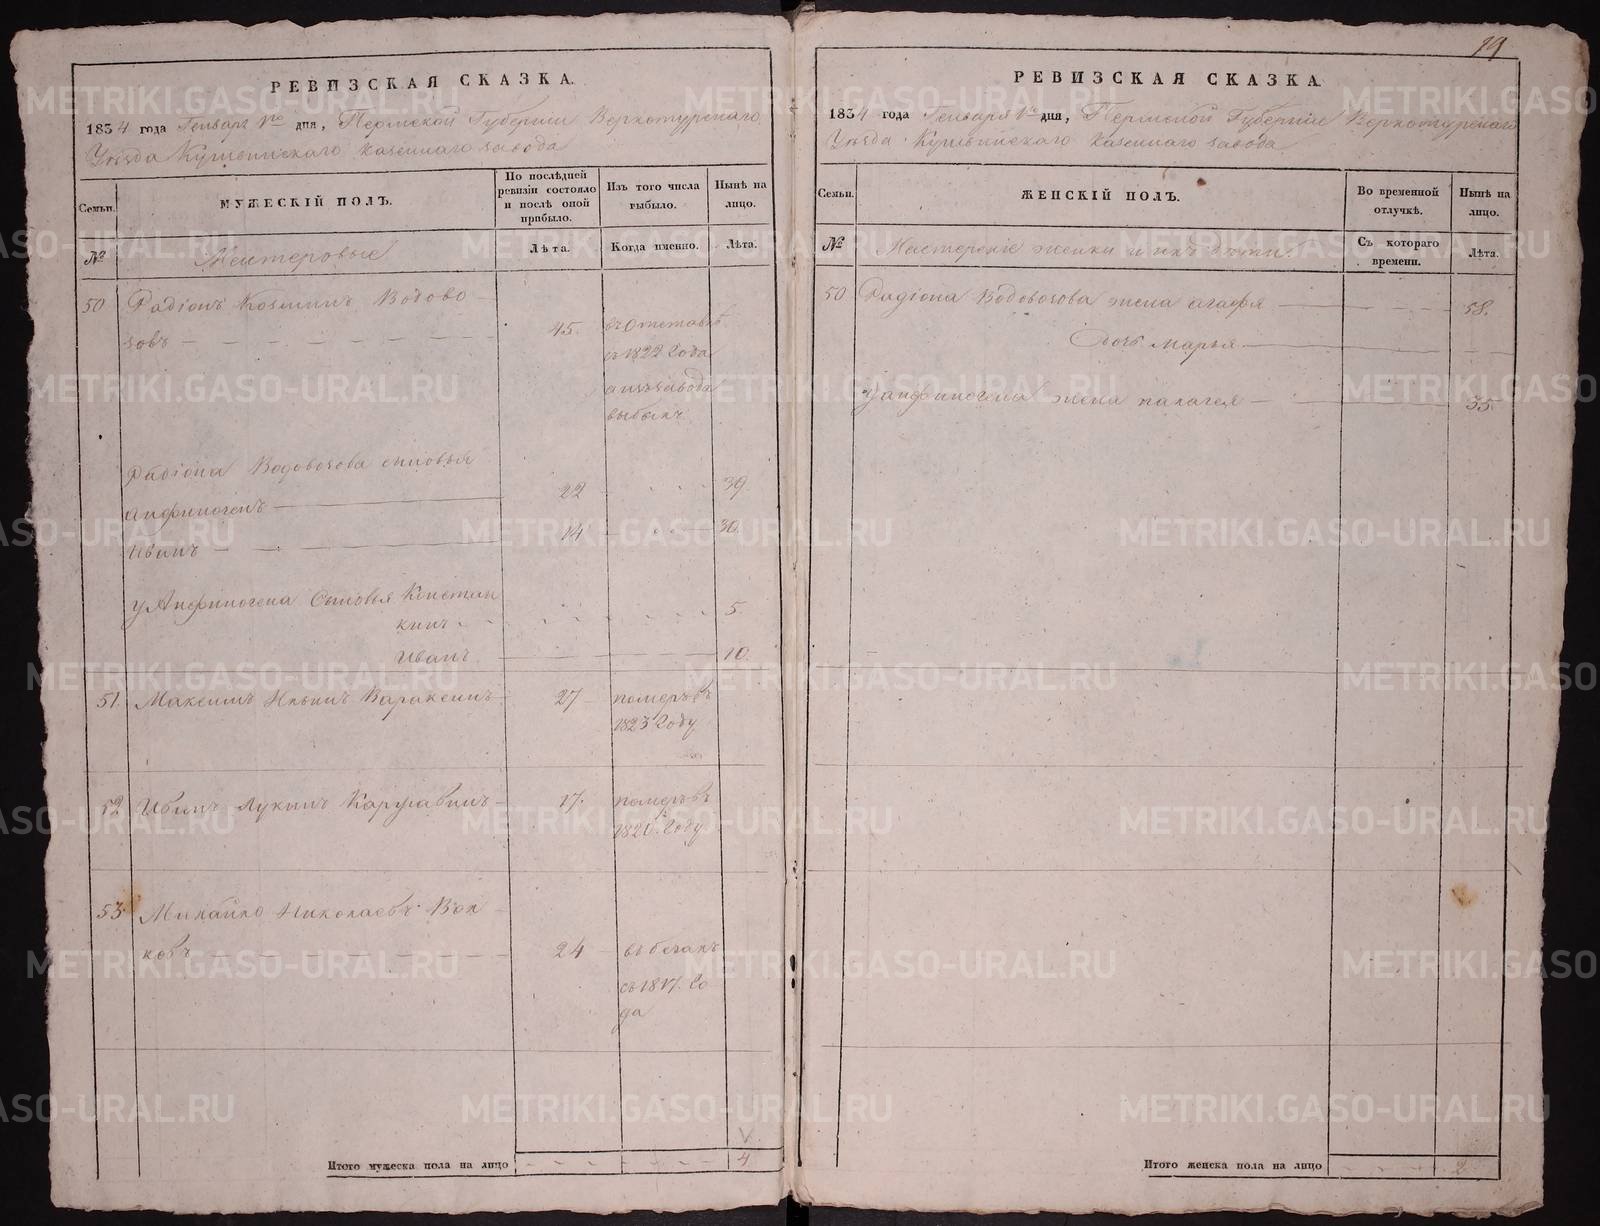 РЕВИЗСКАЯ СКАЗКА.
1834 года Генваря 1го дня, Пермской Губернии Верхотурского
Уезда Кушвинскаго казеннаго завода
Семьи.
МУЖЕСКІЙ ПОЛЪ.
По послѣдней ревизіи состояло и послѣ оной прибыло.
Изъ того числа выбыло.
Нынѣ на лицо.
№
Мастеровые
Лѣта.
Когда именно.
Лѣта.
50 Радіонъ Козминъ Водово
зовъ 45. въ отставке
съ 1822 года
а изъ завода
выбылъ
Радіона Водовозова сыновья
Анфиногенъ 22 39.
Иванъ 14 30.
у Анфиногена Сыновья Констан
кинъ 5.
Иванъ 10.
51. Максимъ Ильинъ Варакинъ 27 померъ въ
1823 Году
52 Иванъ Лукинъ Каруавинъ 17. померъ въ
Году
53. Михайло Николаевъ Вол
ковъ 24 въ бегахъ
съ 1817. Го
да
Итого мужеска пола на лицо 4
19
РЕВИЗСКАЯ СКАЗКА
1834 года Генваря 1го дня, Пермской Губерніи Верхотурскаго
Уезда Кушвинскаго казеннаго завода
Семьи.
ЖЕНСКІЙ ПОЛЪ.
Во временной отлучкѣ.
Нынѣ на лицо.
№
Мастерскіе женки и ихъ дети.
Съ котораго времени.
Лѣта.
50 Радіона Водовозова жена агафья 58.
Дочь Марья
у анфиногена жена палагея 35
Итого женска пола на лицо 2
METRIKI.GASO-URAL.RU